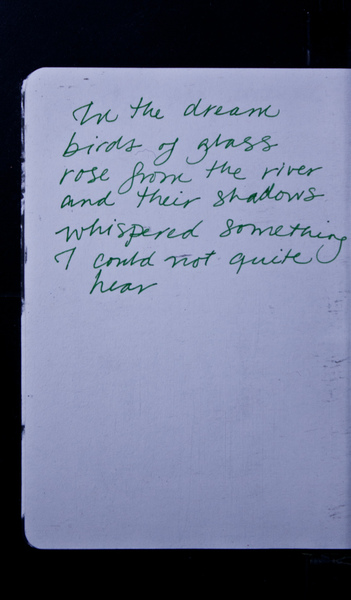 In the dream
birds of glass
rose from the river
and their shadows
whispered something
I could not quite
hear